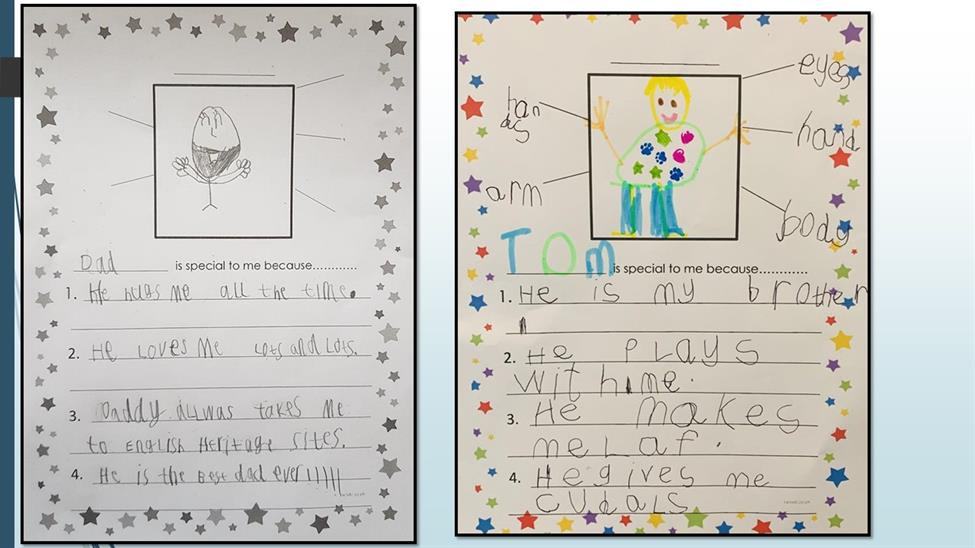 Dad is special to me because............
1. He hugs me all the time.
2. He Loves Me Lots and Lots.
3. Daddy allwas takes Me
to English Heritage Sites.
4. He is the Best dad ever!!!!!
eyes
han
ds
hand
arm
body
Tom is special to me because............
1. He is my brother
2. He PLays
with me.
3. He makes
me Laf.
4. He gives me
cudals